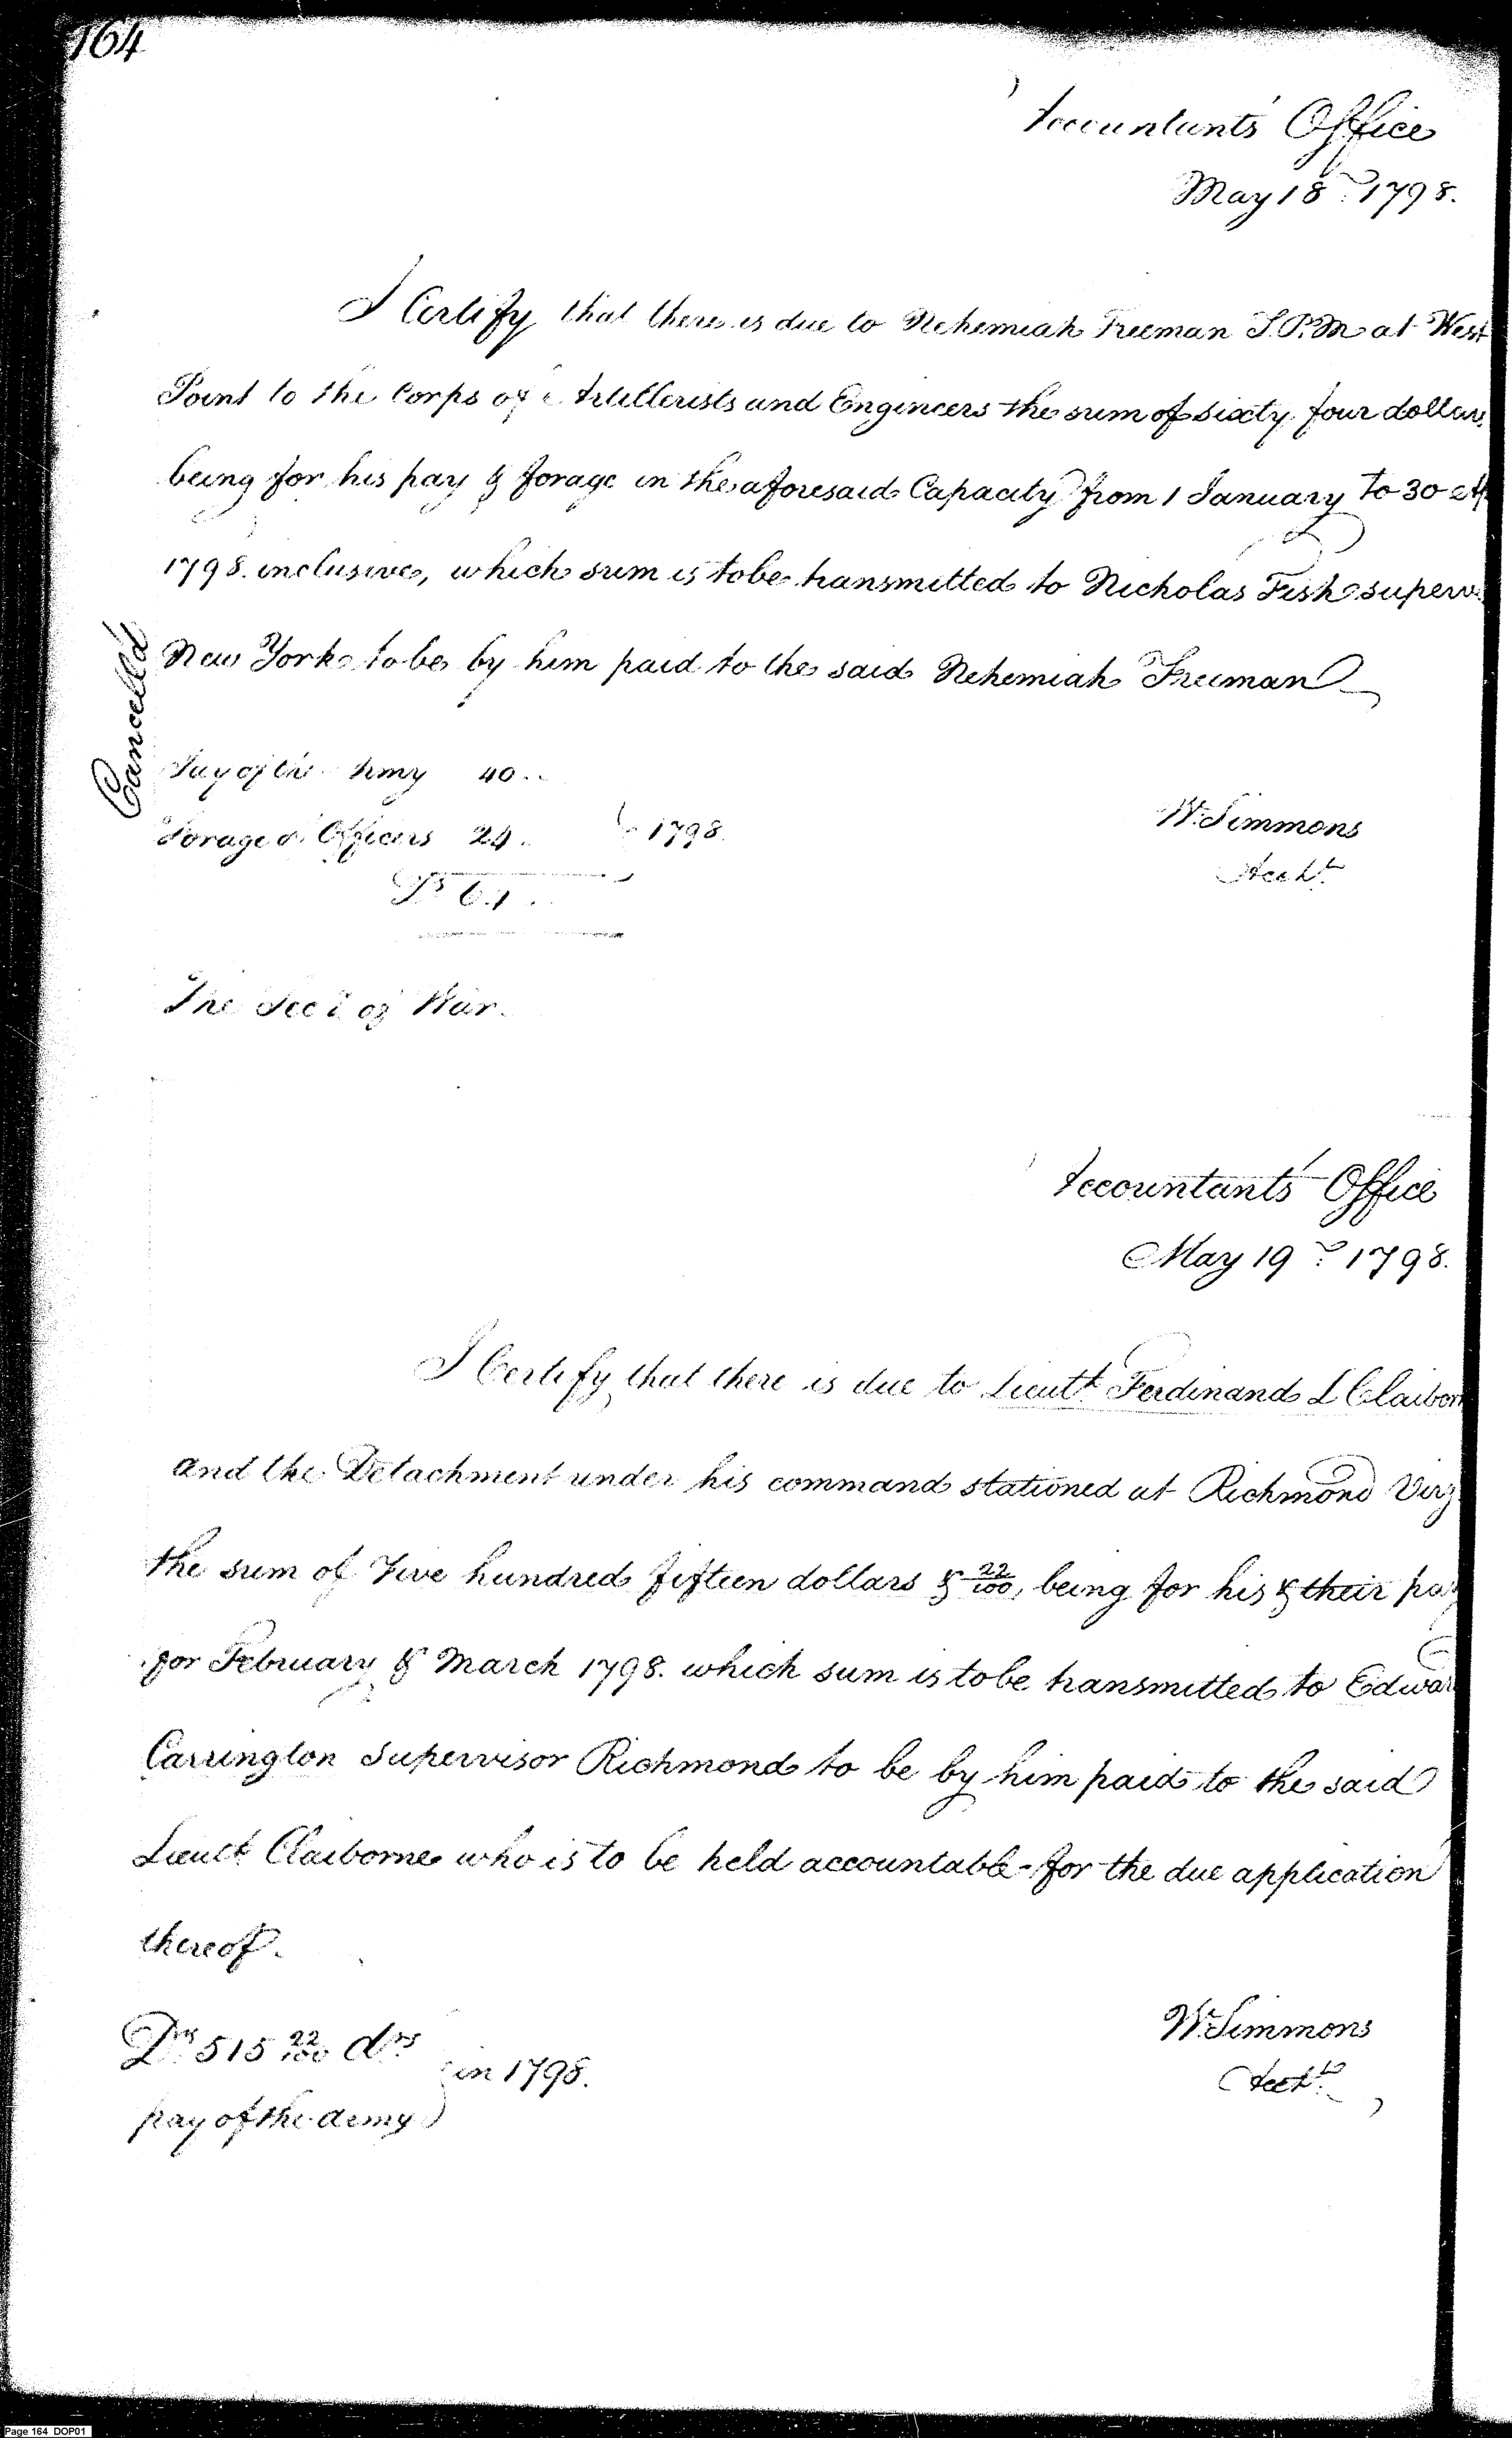 164
Accountants' Office
May 18th 1798.
I Certify that there is due to Nehemiah Freeman S.P.M at West
Point to the Corps of Artillerists and Engineers the sum of sixty four dollars
being for his pay & forage in the aforesaid Capacity from 1 January to 30
1798. inclusive, which sum is to be transmitted to Nicholas Fish superv
New York to be by him paid to the said Nehemiah Freeman
Cancelld
Pay of the Army 40..
Forage of Officers 24.. } 1798.
Ds 64..
W. Simmons
Acct
The Secy of War.
Accountants' Office
May 19th 1798.
I Certify that there is due to Lieutt Ferdinand L Claibor
and the Detachment under his command stationed at Richmond Virg
the sum of Five hundred fifteen dollars & 22/100, being for his & their pay
for February & March 1798. which sum is to be transmitted to Edwar
Carrington Supervisor Richmond to be by him paid to the said
Lieutt Claiborne who is to be held accountable for the due application
thereof.
Drs 515 22/100 drs
pay of the Army } in 1798.
W. Simmons
Acctt
Page 164 DOP01